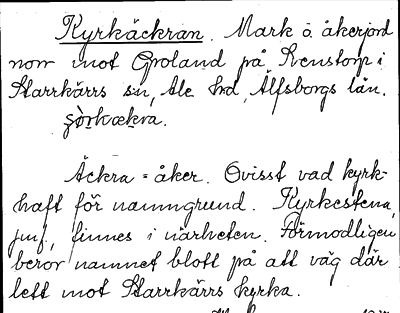 Kyrkäckran. Mark o. åkerjord
norr mot Groland på Svenstorp i
Starrkärrs sn, Ale hd, Älfsborgs län.
Äckra = åker. Ovisst vad kyrk-
haft för namngrund. Kyrkestena,
jmf, finnes i närheten. Förmodligen
beror namnet blott på att väg där
lett mot Starrkärrs kyrka.